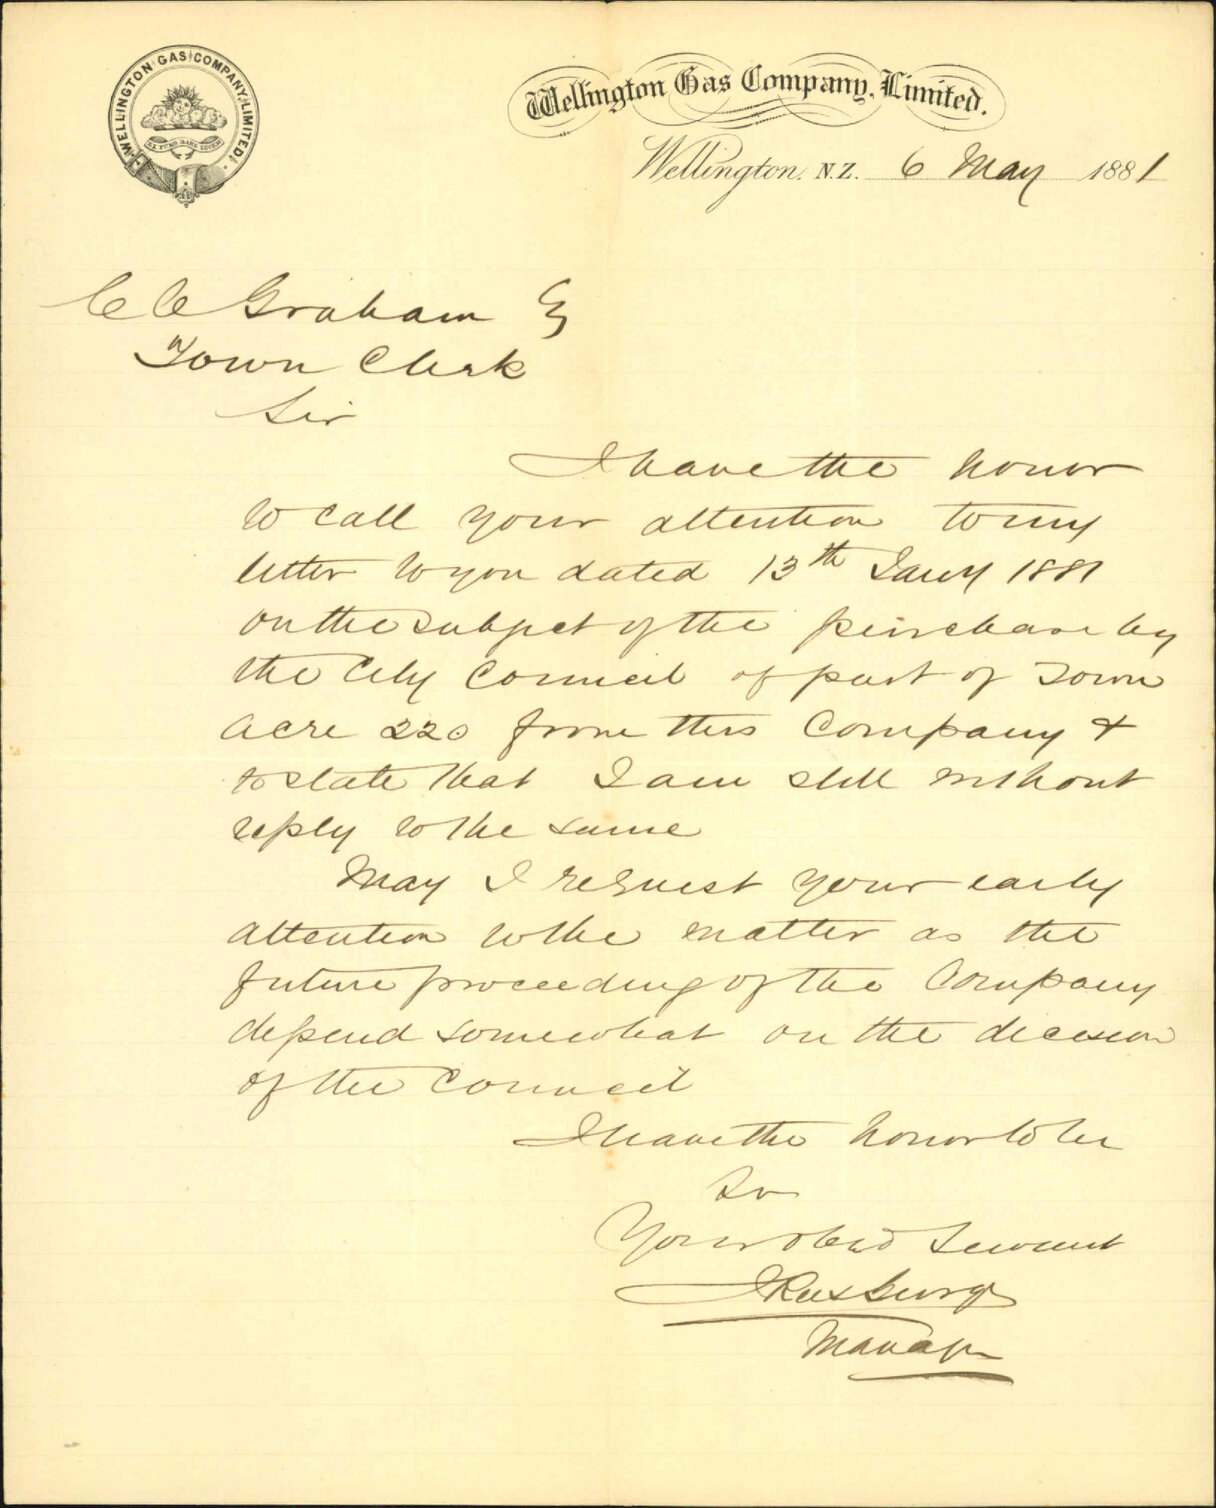 WELLINGTON GAS COMPANY LIMITED
EX FUMO DARE LUCEM
Wellington Gas Company, Limited.
Wellington, N.Z. 6 May 1881
C C Graham Esq
Town Clerk
Sir
I have the honor
to call your attention to my
letter to you dated 13th Jany 1881
on the subject of the purchase by
the City Council of part of Town
Acre 220 from this Company &
to state that I am still without
reply to the same
May I request your early
attention to the matter as the
future proceeding of the Company
depend somewhat on the decision
of the Council
I have the honor to be
Sir
Your obed Servant
J Rexburge
Manager